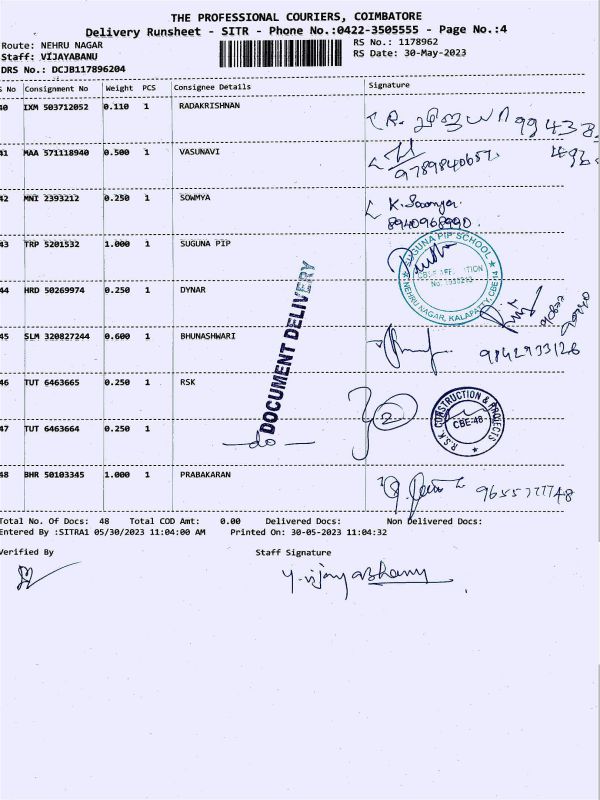 THE PROFESSIONAL COURIERS, COIMBATORE
Delivery Runsheet - SITR - Phone No.:0422-3505555 - Page No.:4
Route: NEHRU NAGAR
RS No.: 1178962
Staff: VIJAYABANU
RS Date: 30-May-2023
DRS No.: DCJB117896204
S No Consignment No Weight PCS Consignee Details Signature
40 IXM 503712052 0.110 1 RADAKRISHNAN
41 MAA 571118940 0.500 1 VASUNAVI
9789840657
42 MNI 2393212 0.250 1 SOWMYA K. Sowmya
8940968990
43 TRP 5201532 1.000 1 SUGUNA PIP
SUGUNA PIP SCHOOL
NEHRU NAGAR, KALAPATTY, CBE-14
44 HRD 50269974 0.250 1 DYNAR
DOCUMENT DELIVERY
45 SLM 320827244 0.600 1 BHUNASHWARI
9842933126
46 TUT 6463665 0.250 1 RSK
R.S.K CONSTRUCTION & PROJECTS
CBE-48
2
47 TUT 6463664 0.250 1
-do-
48 BHR 50103345 1.000 1 PRABAKARAN 9655777748
Total No. Of Docs: 48 Total COD Amt: 0.00 Delivered Docs: Non Delivered Docs:
Entered By :SITRA1 05/30/2023 11:04:00 AM Printed On: 30-05-2023 11:04:32
Verified By Staff Signature
Y. vijayabhanu